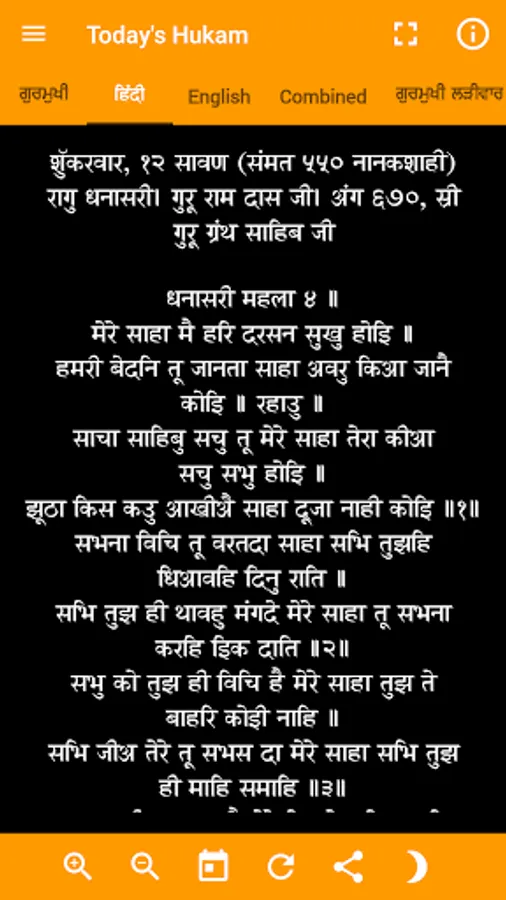 Today's Hukam
ਗੁਰਮੁਖੀ हिंदी English Combined ਗੁਰਮੁਖੀ ਲੜੀਵਾਰ
शुॅकरवार, १२ सावण (संमत ५५० नानकशाही)
रागु धनासरी। गुरू राम दास जी। अंग ६७०, स्री
गुरू ग्रंथ साहिब जी
धनासरी महला ४ ॥
मेरे साहा मै हरि दरसन सुखु होइि ॥
हमरी बेदनि तू जानता साहा अवरु किआ जानै
कोइि ॥ रहाउु ॥
साचा साहिबु सचु तू मेरे साहा तेरा कीआ
सचु सभु होइि ॥
झूठा किस कउु आखीअै साहा दूजा नाही कोइि ॥१॥
सभना विचि तू वरतदा साहा सभि तुझहि
धिआवहि दिनु राति ॥
सभि तुझ ही थावहु मंगदे मेरे साहा तू सभना
करहि इिक दाति ॥२॥
सभु को तुझ ही विचि है मेरे साहा तुझ ते
बाहरि कोइी नाहि ॥
सभि जीअ तेरे तू सभस दा मेरे साहा सभि तुझ
ही माहि समाहि ॥३॥